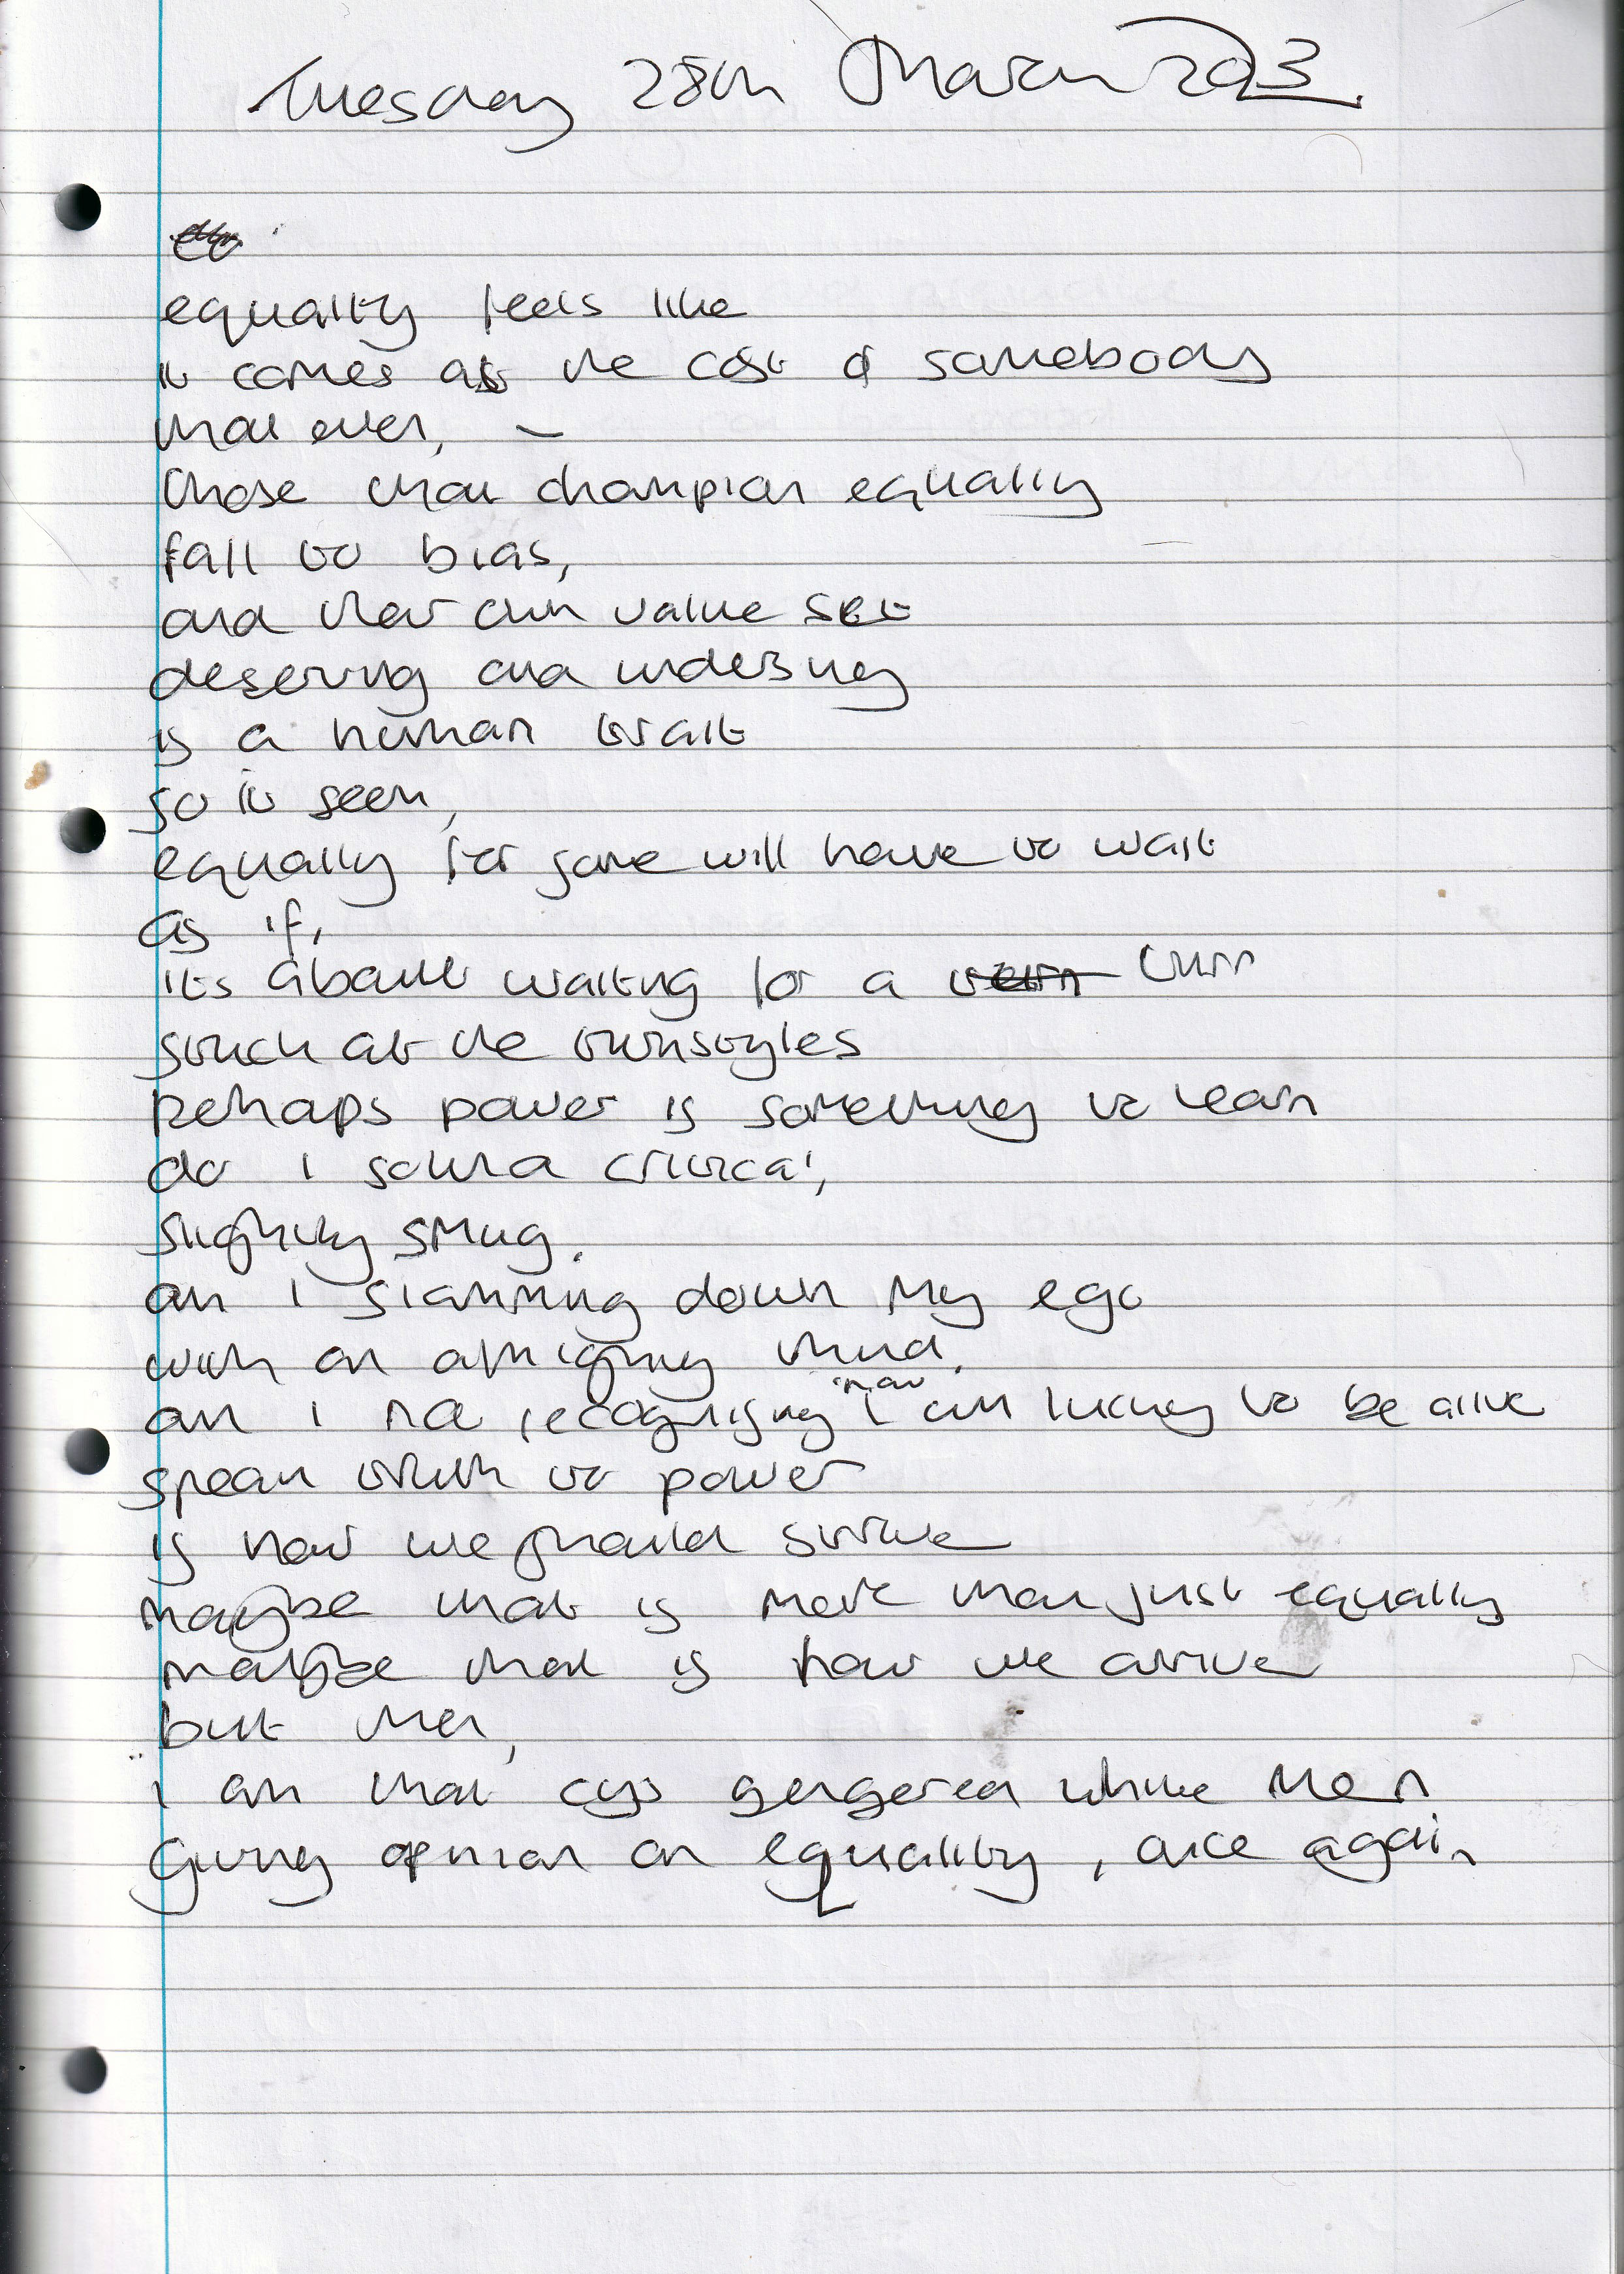 Tuesday 28th March 2023.
equality feels like
it comes at the cost of somebody
what ever, –
those that champion equality
fall to bias,
and their own value set
deserving and undeserving
is a human trait
so it seem,
equality for some will have to wait
as if,
its about waiting for a turn
stuck at the turnstyles
perhaps power is something to learn
do i sound critical,
slightly smug.
am i slamming down my ego
with an almighty thud.
am i not recognising how i am lucky to be alive
speak truth to power
is how we should strive
maybe that is more than just equality
maybe that is how we arrive
but then,
i am that cys gengered white men
giving opinion on equality, once again